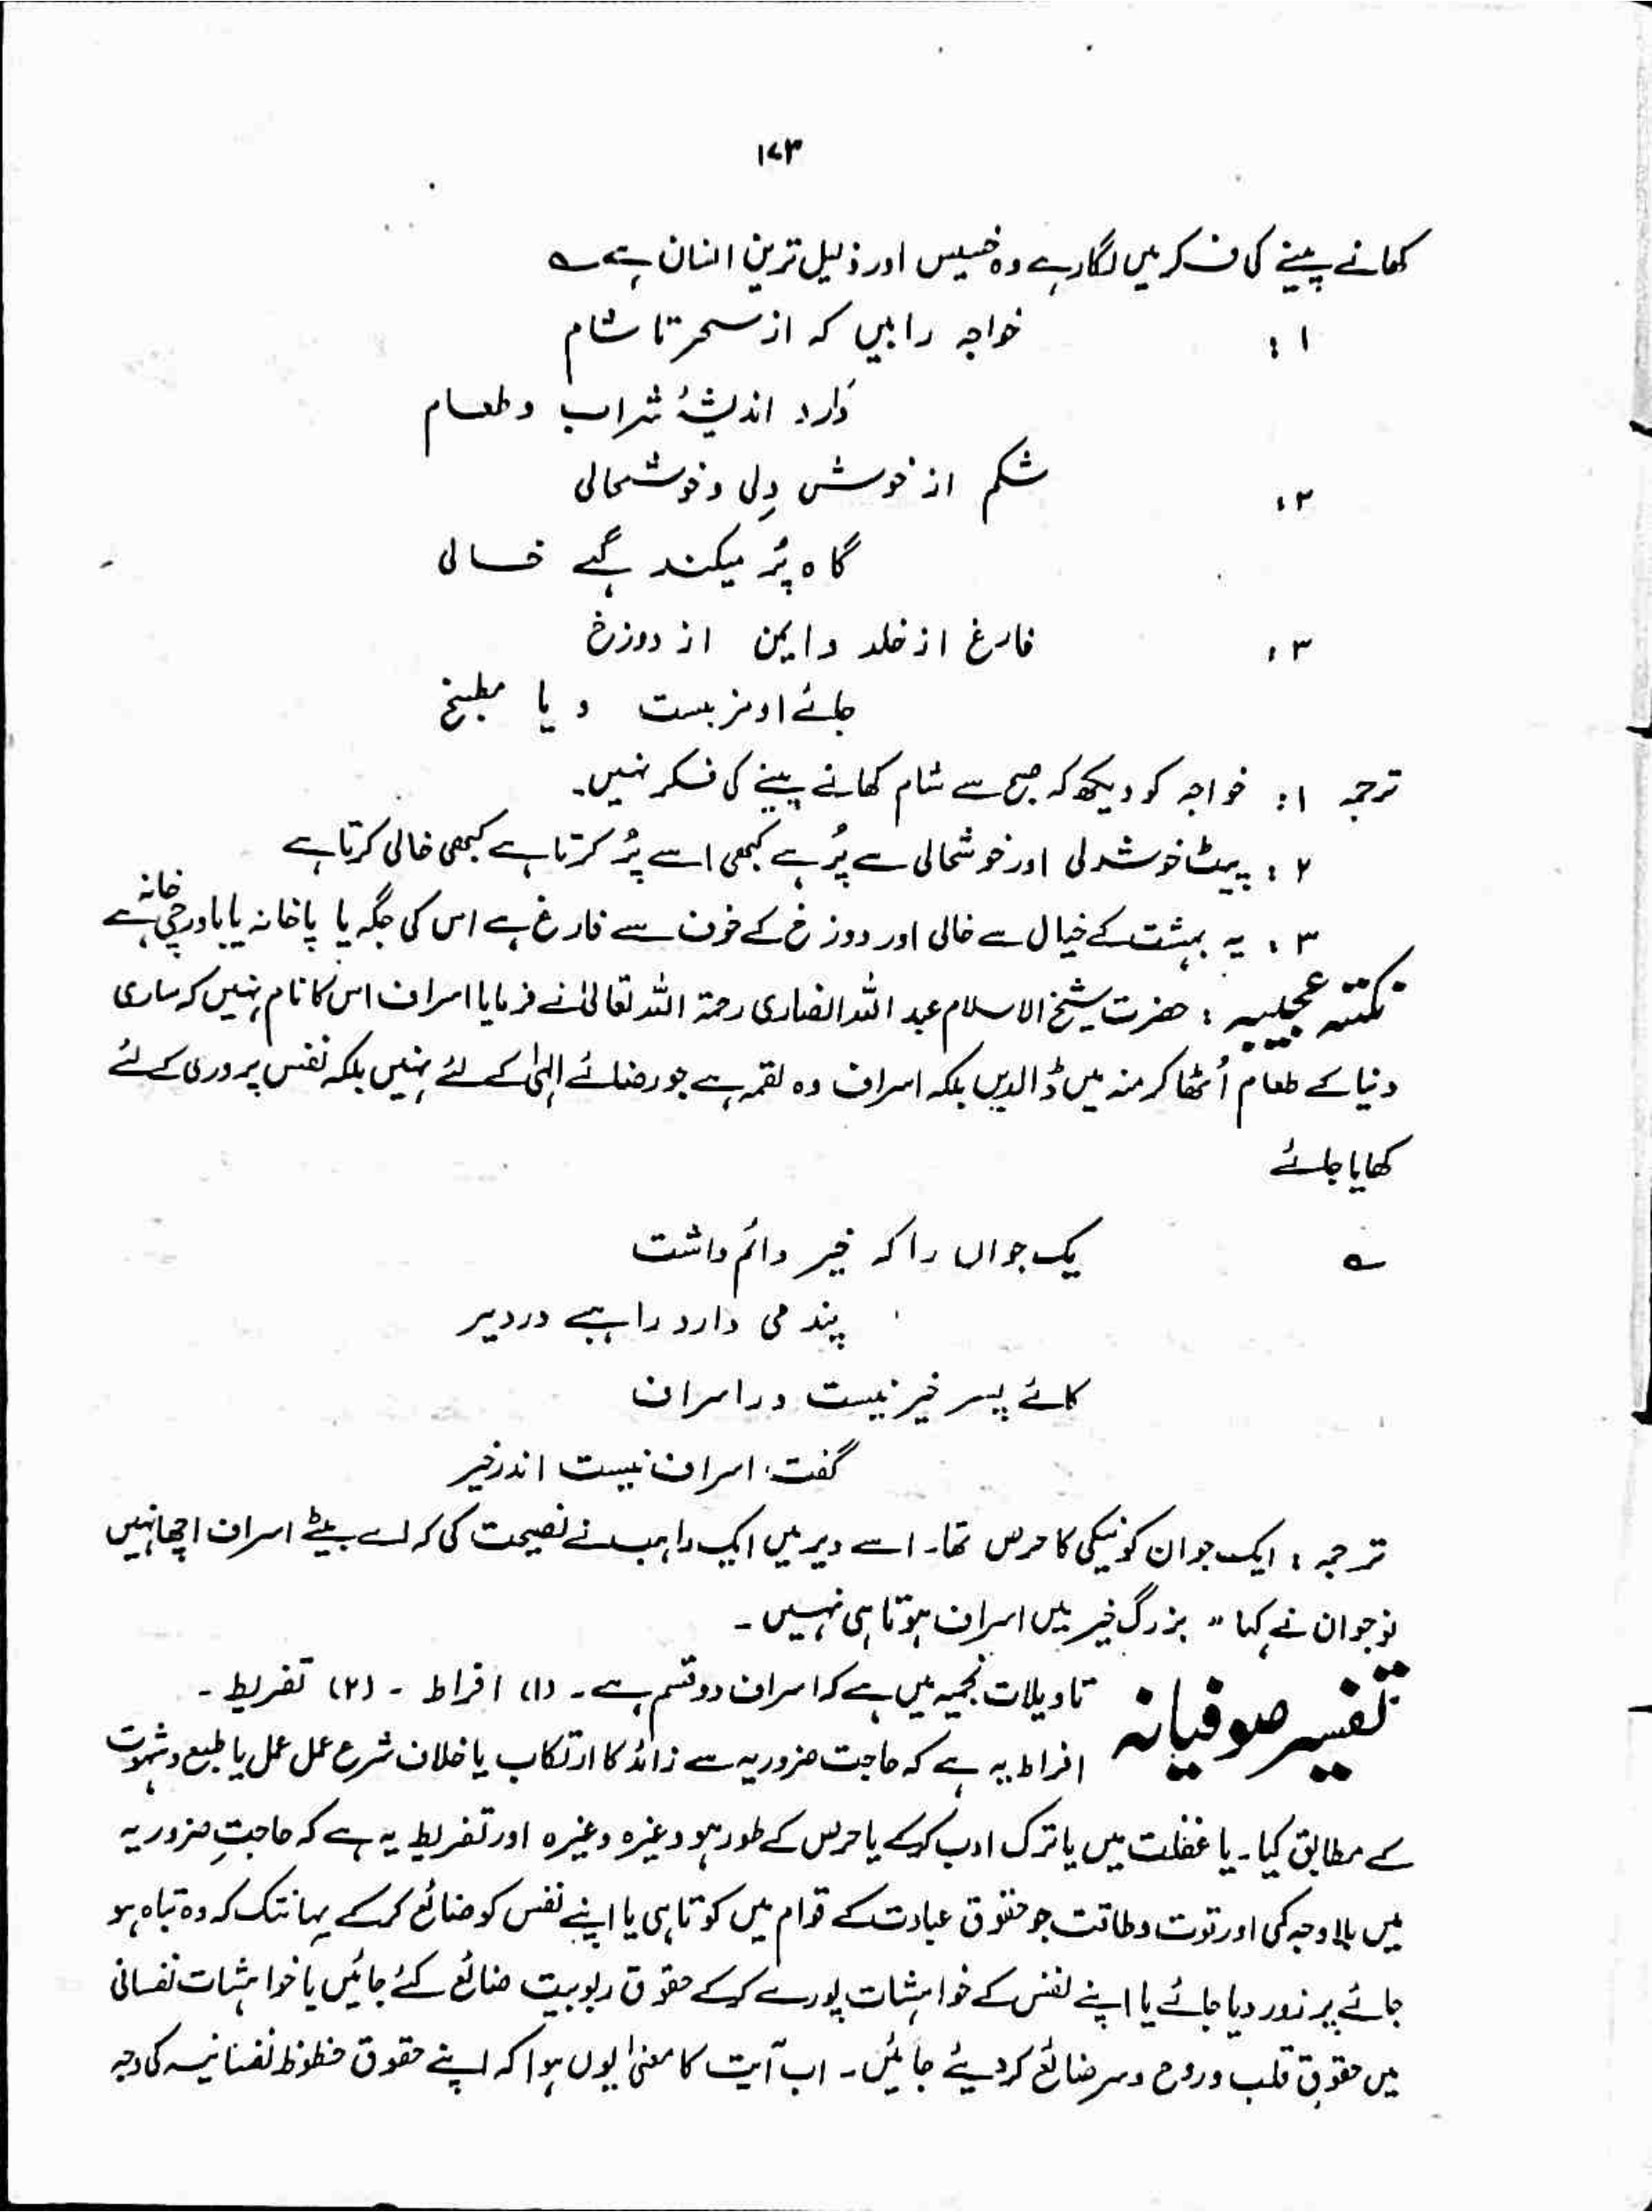 ۱۷۳
کھانے پینے کی فکر میں لگا رہے وہ خسیس اور ذلیل ترین انسان ہے ؎
۱ : خواجہ را بیں کہ از سحر تا شام
دارد اندیشۂ شراب و طعام
۲ : شکم از خوش دِلی و خوشحالی
گاہ پُر میکند گہے خالی
۳ : فارغ از خلد و ایمن از دوزخ
جائے او مزبست و یا مطبخ
ترجمہ ۱ : خواجہ کو دیکھ کہ صبح سے شام کھانے پینے کی فکر نہیں۔
۲ : پیٹ خوشدلی اور خوشحالی سے پُر ہے کبھی اسے پُر کرتا ہے کبھی خالی کرتا ہے
۳ : یہ بہشت کے خیال سے خالی اور دوزخ کے خوف سے فارغ ہے اس کی جگہ یا پاخانہ یا باورچی خانہ ہے
نکتہ عجیبہ : حضرت شیخ الاسلام عبد اللہ انصاری رحمۃ اللہ تعالیٰ نے فرمایا اسراف اس کا نام نہیں کہ ساری
دنیا کے طعام اُٹھا کر منہ میں ڈالدیں بلکہ اسراف وہ لقمہ ہے جو رضائے الہٰی کے لئے نہیں بلکہ نفس پروری کے لئے
کھایا جائے
؎ یک جواں را کہ خیر دائم داشت
پند می دارد راہبے در دیر
کائے پسر خیر نیست در اسراف
گفت اسراف نیست اندر خیر
ترجمہ : ایک جوان کو نیکی کا حرص تھا۔ اسے دیر میں ایک راہب نے نصیحت کی کہ اے بیٹے اسراف اچھا نہیں
نوجوان نے کہا " بزرگ خیر میں اسراف ہوتا ہی نہیں ۔
تفسیر صوفیانہ تاویلات نجمیہ میں ہے کہ اسراف دو قسم ہے۔ (۱) افراط ۔ (۲) تفریط ۔
افراط یہ ہے کہ حاجت ضروریہ سے زائد کا ارتکاب یا خلاف شرع عمل عمل یا طبع و شہوت
کے مطابق کیا۔ یا غفلت میں یا ترک ادب کرکے یا حرص کے طور ہو وغیرہ وغیرہ اور تفریط یہ ہے کہ حاجتِ ضروریہ
میں بلا وجہ کمی اور قوت و طاقت جو حقوق عبادت کے قوام میں کوتاہی یا اپنے نفس کو ضائع کرکے یہانتک کہ وہ تباہ ہو
جائے پر زور دیا جائے یا اپنے نفس کے خواہشات پورے کرکے حقوق ربوبیت ضائع کئے جائیں یا خواہشات نفسانی
میں حقوق قلب و روح و سر ضائع کر دیئے جائیں۔ اب آیت کا معنیٰ یوں ہوا کہ اپنے حقوق حظوظ نفسانیہ کی وجہ